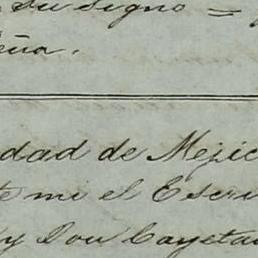 su signo =
dad de Mejic
te mi el Escri
y Don Cayeta